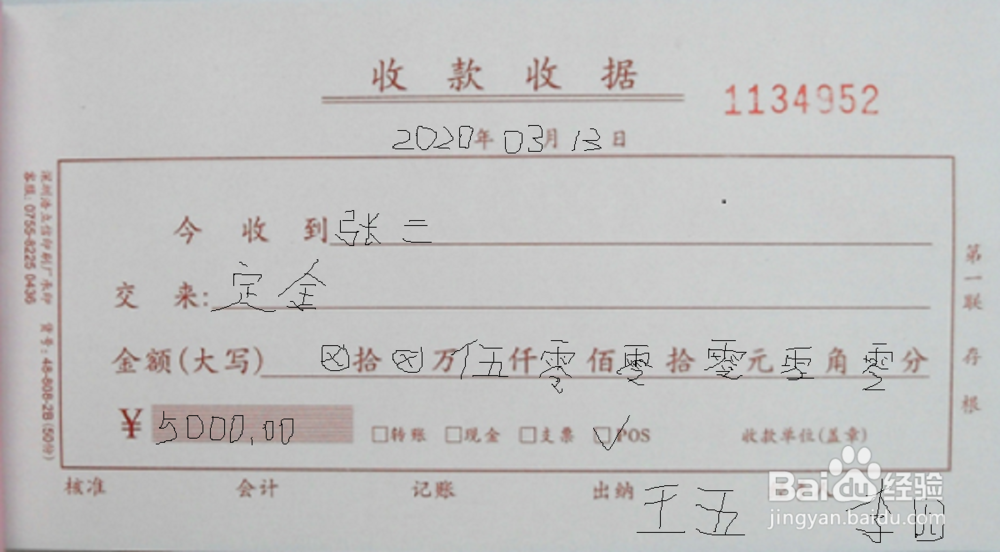 收款收据
1134952
2020年03月13日
今收到张三
交来:定金
金额(大写) ⊠拾⊠万伍仟零佰零拾零元零角零分
¥5000.00 □转账 □现金 □支票 ☑POS 收款单位(盖章)
核准 会计 记账 出纳 王五 李四
第一联 存根
深圳浩立信印刷厂承印 货号:48-808-2B(50份)
客服:0755-8225 0436
Baidu经验
jingyan.baidu.com